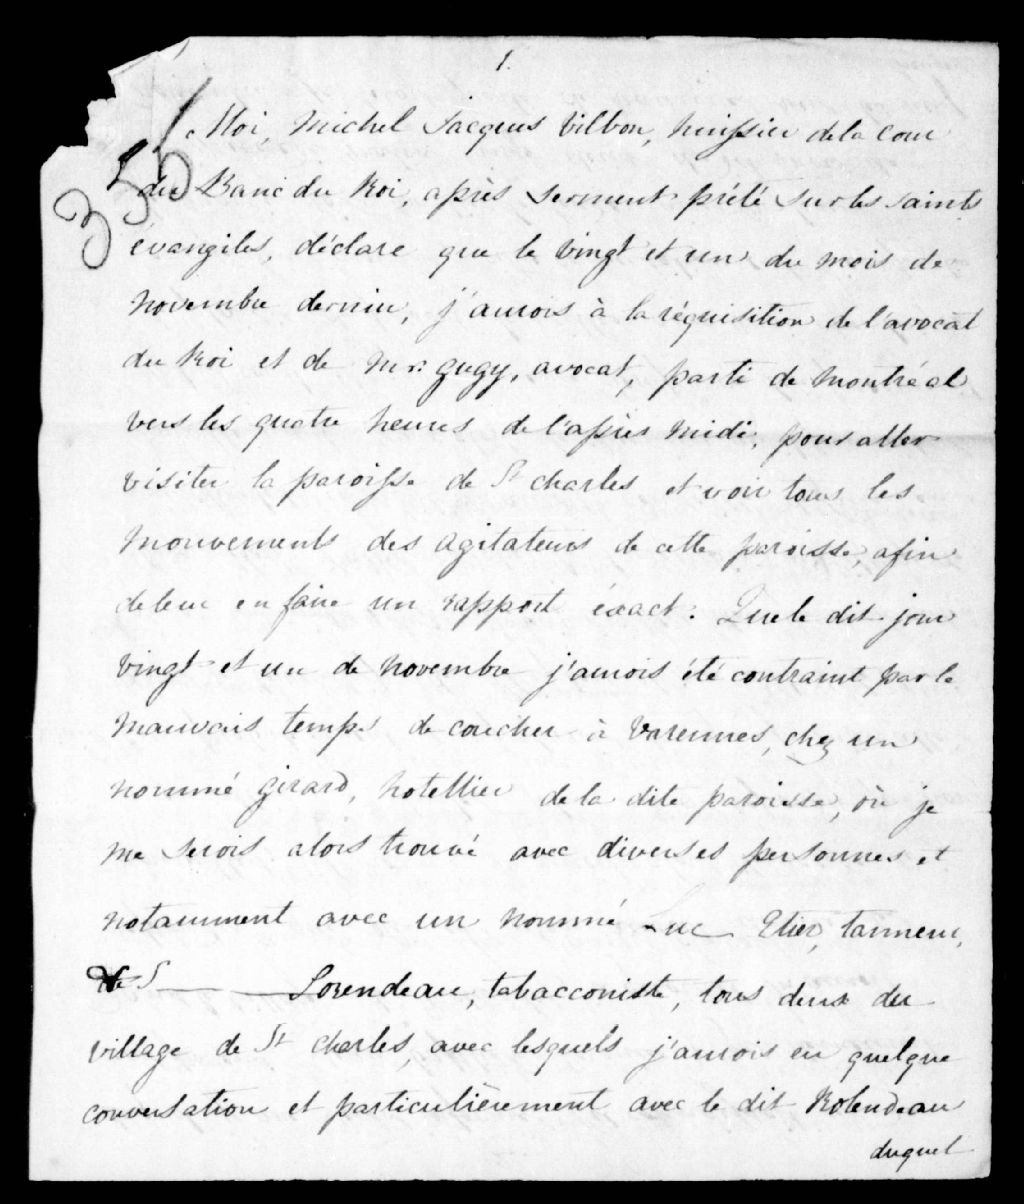 1.
355
Moi, Michel Jacques Vilbon, huissier de la Cour
du Banc du Roi, après serment prété sur les saints
évangiles, déclare que le vingt et un du mois de
novembre dernier, j'aurois à la réquisition de l'avocat
du Roi et de Mr. Gugy, avocat, parti de Montréal
vers les quatre heures de l'après midi, pour aller
visiter la paroisse de St Charles et voir tous les
mouvements des agitateurs de cette paroisse, afin
de leur en faire un rapport éxact: Que le dit jour
vingt et un de novembre j'aurois été contraint par le
mauvais temps de coucher à Varennes, chez un
nommé Girard, hotellier de la dite paroisse, où je
me serois alors trouvé avec diverses personnes et
notamment avec un nommé Luc Etier, tanneur,
et S Lorendeau, tabacconiste, tous deux du
village de St Charles, avec lesquels j'aurois eu quelque
conversation et particulièrement avec le dit Rolendeau
duquel